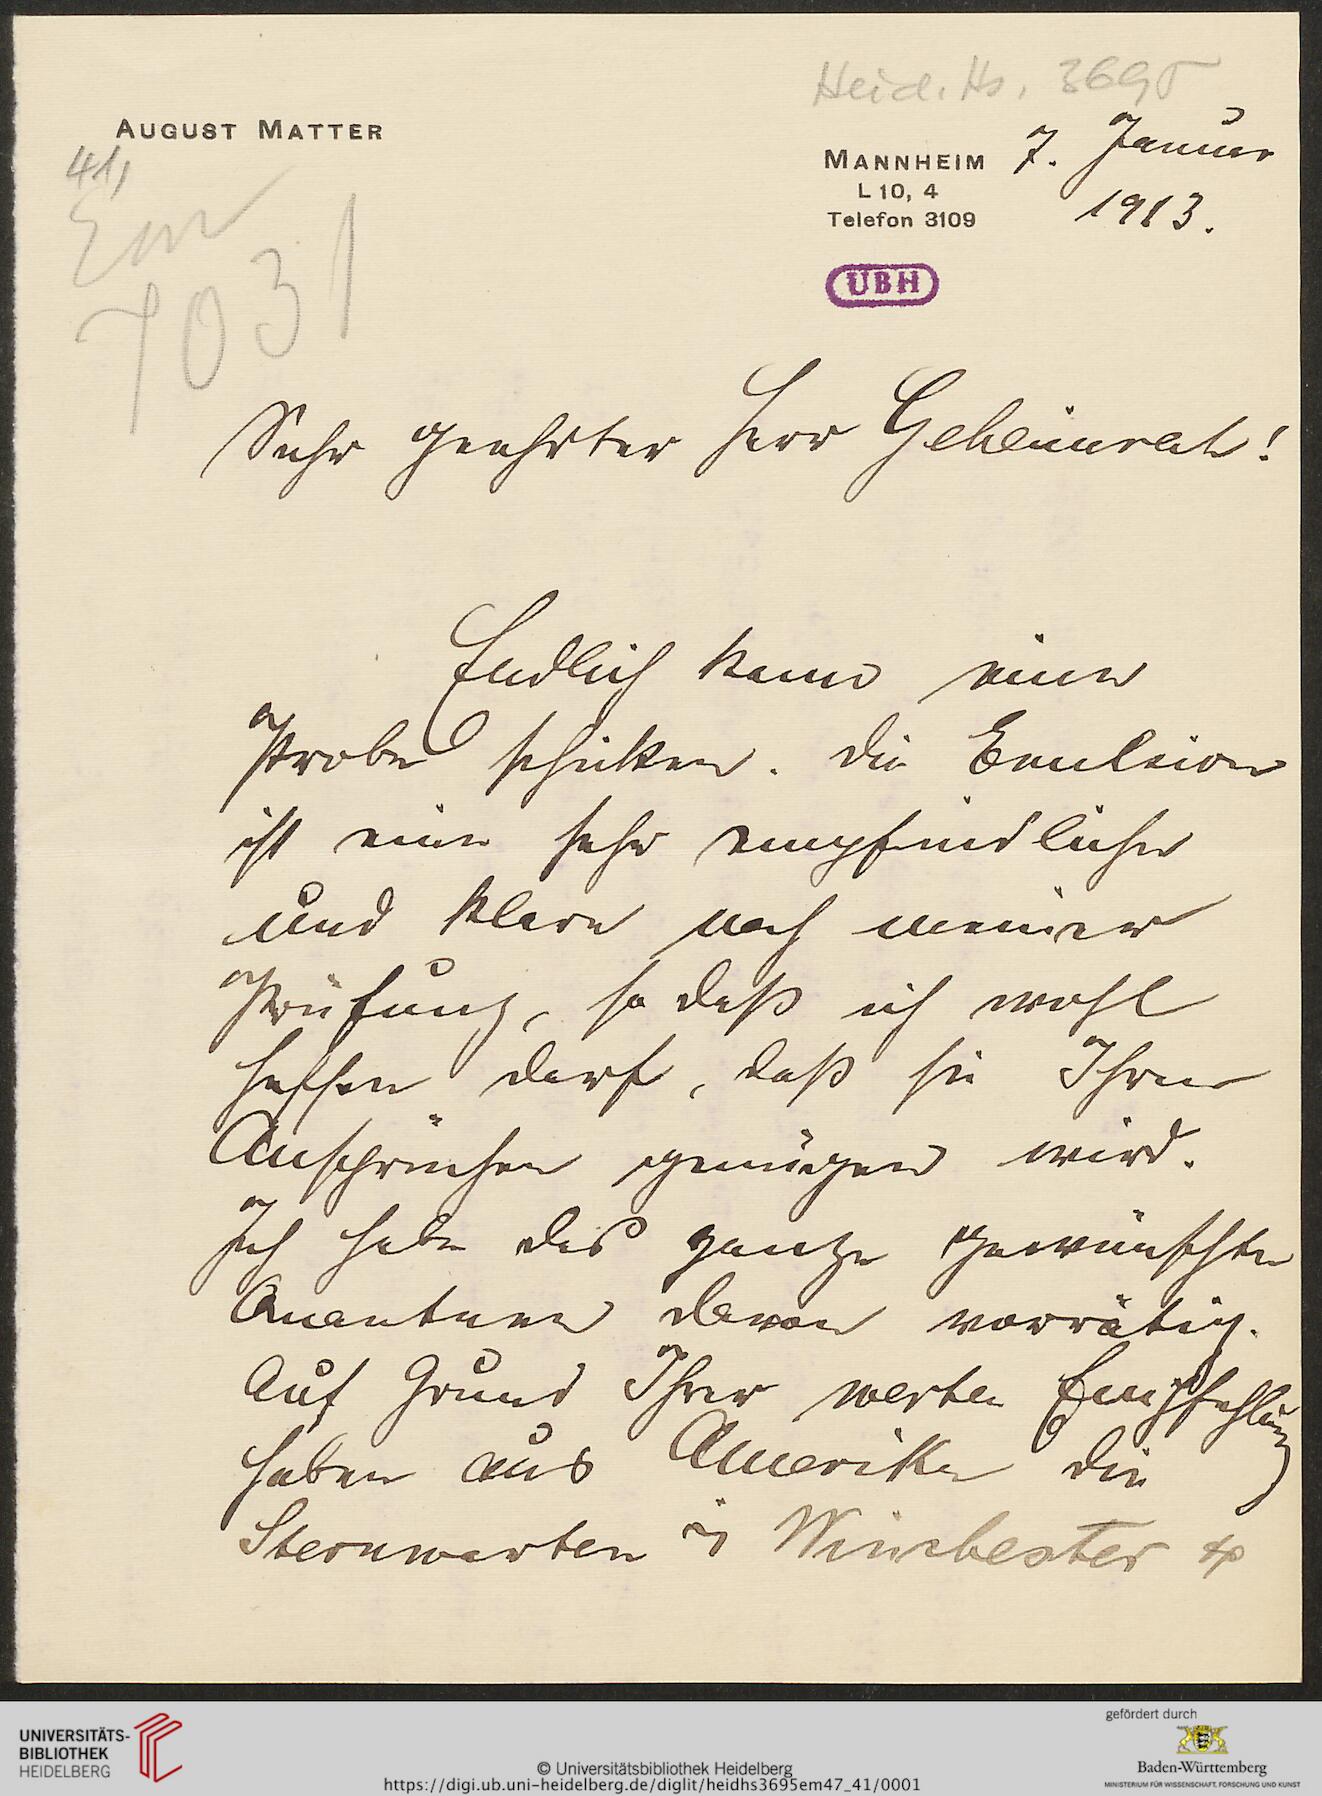 Heid. Hs. 3695
AUGUST MATTER
41,
7. Januar
MANNHEIM
L 10, 4
1913.
Telefon 3109
UBH
7031
Sehr geehrter Herr Geheimrat!
Endlich kann eine
Probe schicken. Die Emulsion
ist eine sehr empfindliche
und klare nach meiner
Prüfung, so daß ich wohl
hoffen darf, daß sie Ihren
Ansprüchen genügen wird.
Ich habe das ganze gewünschte
Quantum davon vorrätig.
Auf Grund Ihrer werten Empfehlung
haben aus Amerika die
Sternwarten in Winchester &
UNIVERSITÄTS-
BIBLIOTHEK
HEIDELBERG
© Universitätsbibliothek Heidelberg
https://digi.ub.uni-heidelberg.de/diglit/heidhs3695em47_41/0001
gefördert durch
Baden-Württemberg
MINISTERIUM FÜR WISSENSCHAFT, FORSCHUNG UND KUNST